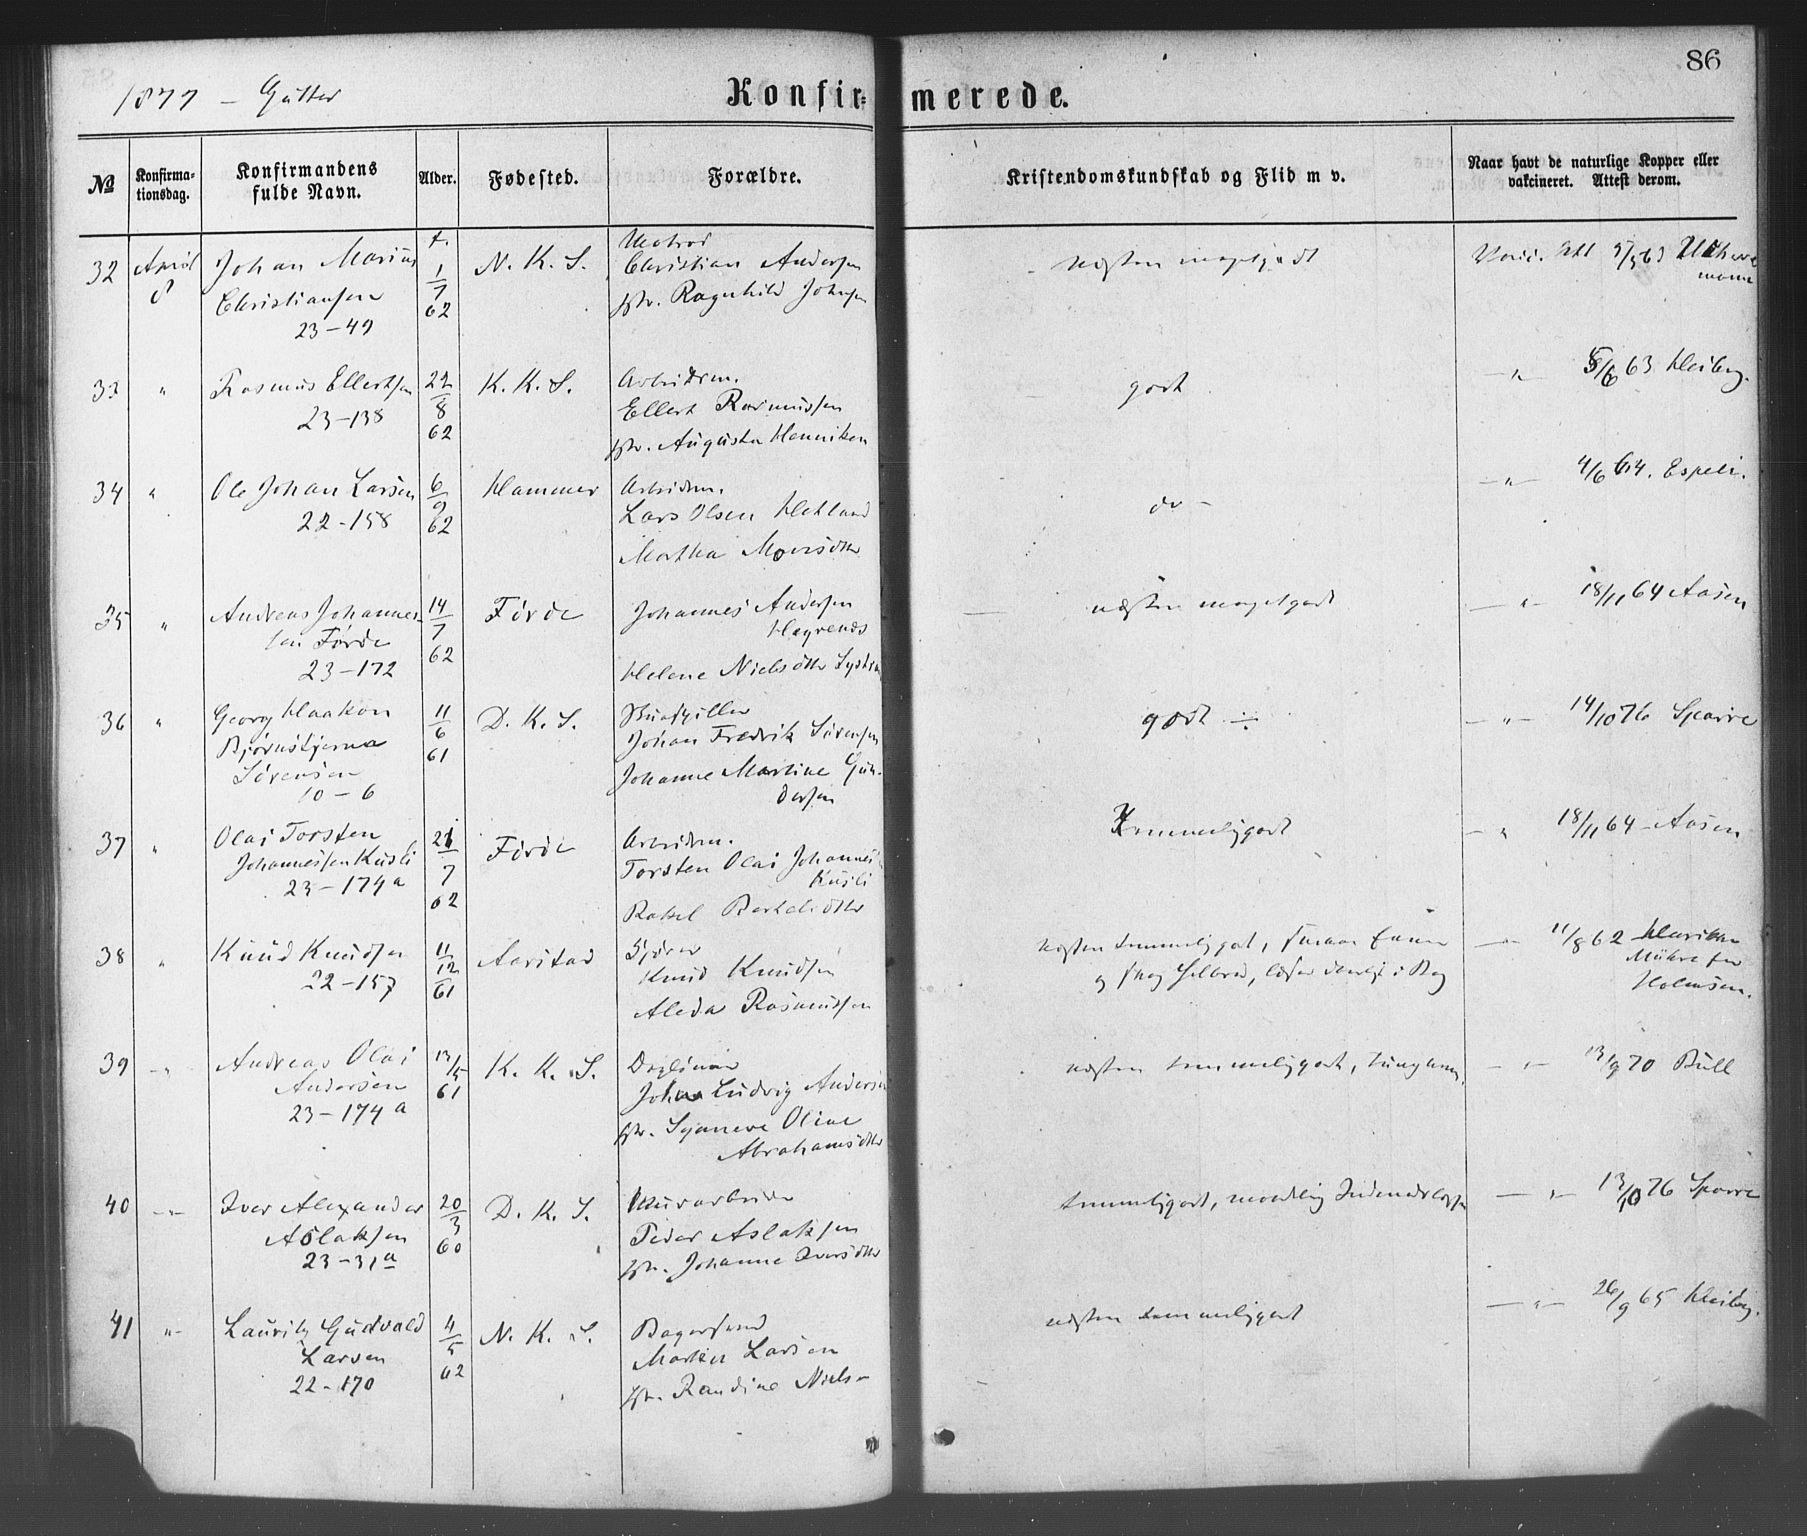 86
1877 – Gutter
Konfir=merede.
№
Konfirma-
tionsdag.
Konfirmandens
fulde Navn.
Alder.
Fødested.
Forældre.
Kristendomskundskab og Flid m v.
Naar havt de naturlige Kopper eller
vakcineret. Attest derom.
32 April
8
Johan Marius
Christiansen
23–49
1/7
62
N. K. S.
Matros
Christian Andersen
Ragnhild Johnsen
Næsten megetgodt
33 "
Rasmus Ellertsen
23–138
22/8
62
K. K. S.
Arbeidsm.
Ellert Rasmussen
Augusta Henriksen
godt
—"— 5/6 63 Heiberg.
34 "
Ole Johan Larsen
22–158
6/9
62
Hammer
Arbeidsm.
Lars Olsen Hetland
Martha Monsdtr
do –
—"— 4/6 64. Espeli.
35 "
Andreas Johannes-
sen Førde
23–172
14/7
62
Førde
Johannes Andersen
Helene Nielsdtr
næsten megetgodt
—"— 18/11 64 Aasen
36 "
Georg Haakon
Bjørnstjerna
Sørensen
10–6
11/6
61
D. K. S.
Johan Fredrik Sørensen
Johanne Martine Gun-
dersen
godt ÷
—"— 14/10 76 Sparre
37 "
Olai Torsten
Johannessen Kusli
23–174a
21/7
62
Førde
Arbeidsm.
Torsten Olai Johannes
Kusli
Rakel Bertelsdtr
Temmeliggodt
—"— 18/11 64 – Aasen
38 "
Knud Knudsen
22–157
11/12
61
Aarstad
Knud Knudsen
Aleda Rasmussen
Næsten temmeliggodt, smaa Evner
og svag Helbred, læser daarligt i Bog
—"— 11/8 62
Holmsen.
39 –"
Andreas Olai
Andersen
23–174a
13/5
61
K. K. S.
Johan Ludvig Andersen
Synneve Oline
Abrahamsdtr
næsten temmeliggodt, tungnem.
—"— 13/9 70 Bull
40 –"–
Iver Alexander
Aslaksen
23–31a
20/3
60
D. K. S.
Murarbeider
Peder Aslaksen
Johanne Iversdtr
temmeliggodt, maadelig Indenadslæsen
—"— 13/10 76 Sparre
41 "–
Lauritz Gudvald
Larsen
22–170
4/5
62
N. K. S.
Bagersvend
Martin Larsen
Randine Niels–
næsten temmeliggodt
—"— 26/9 65 Heiberg.